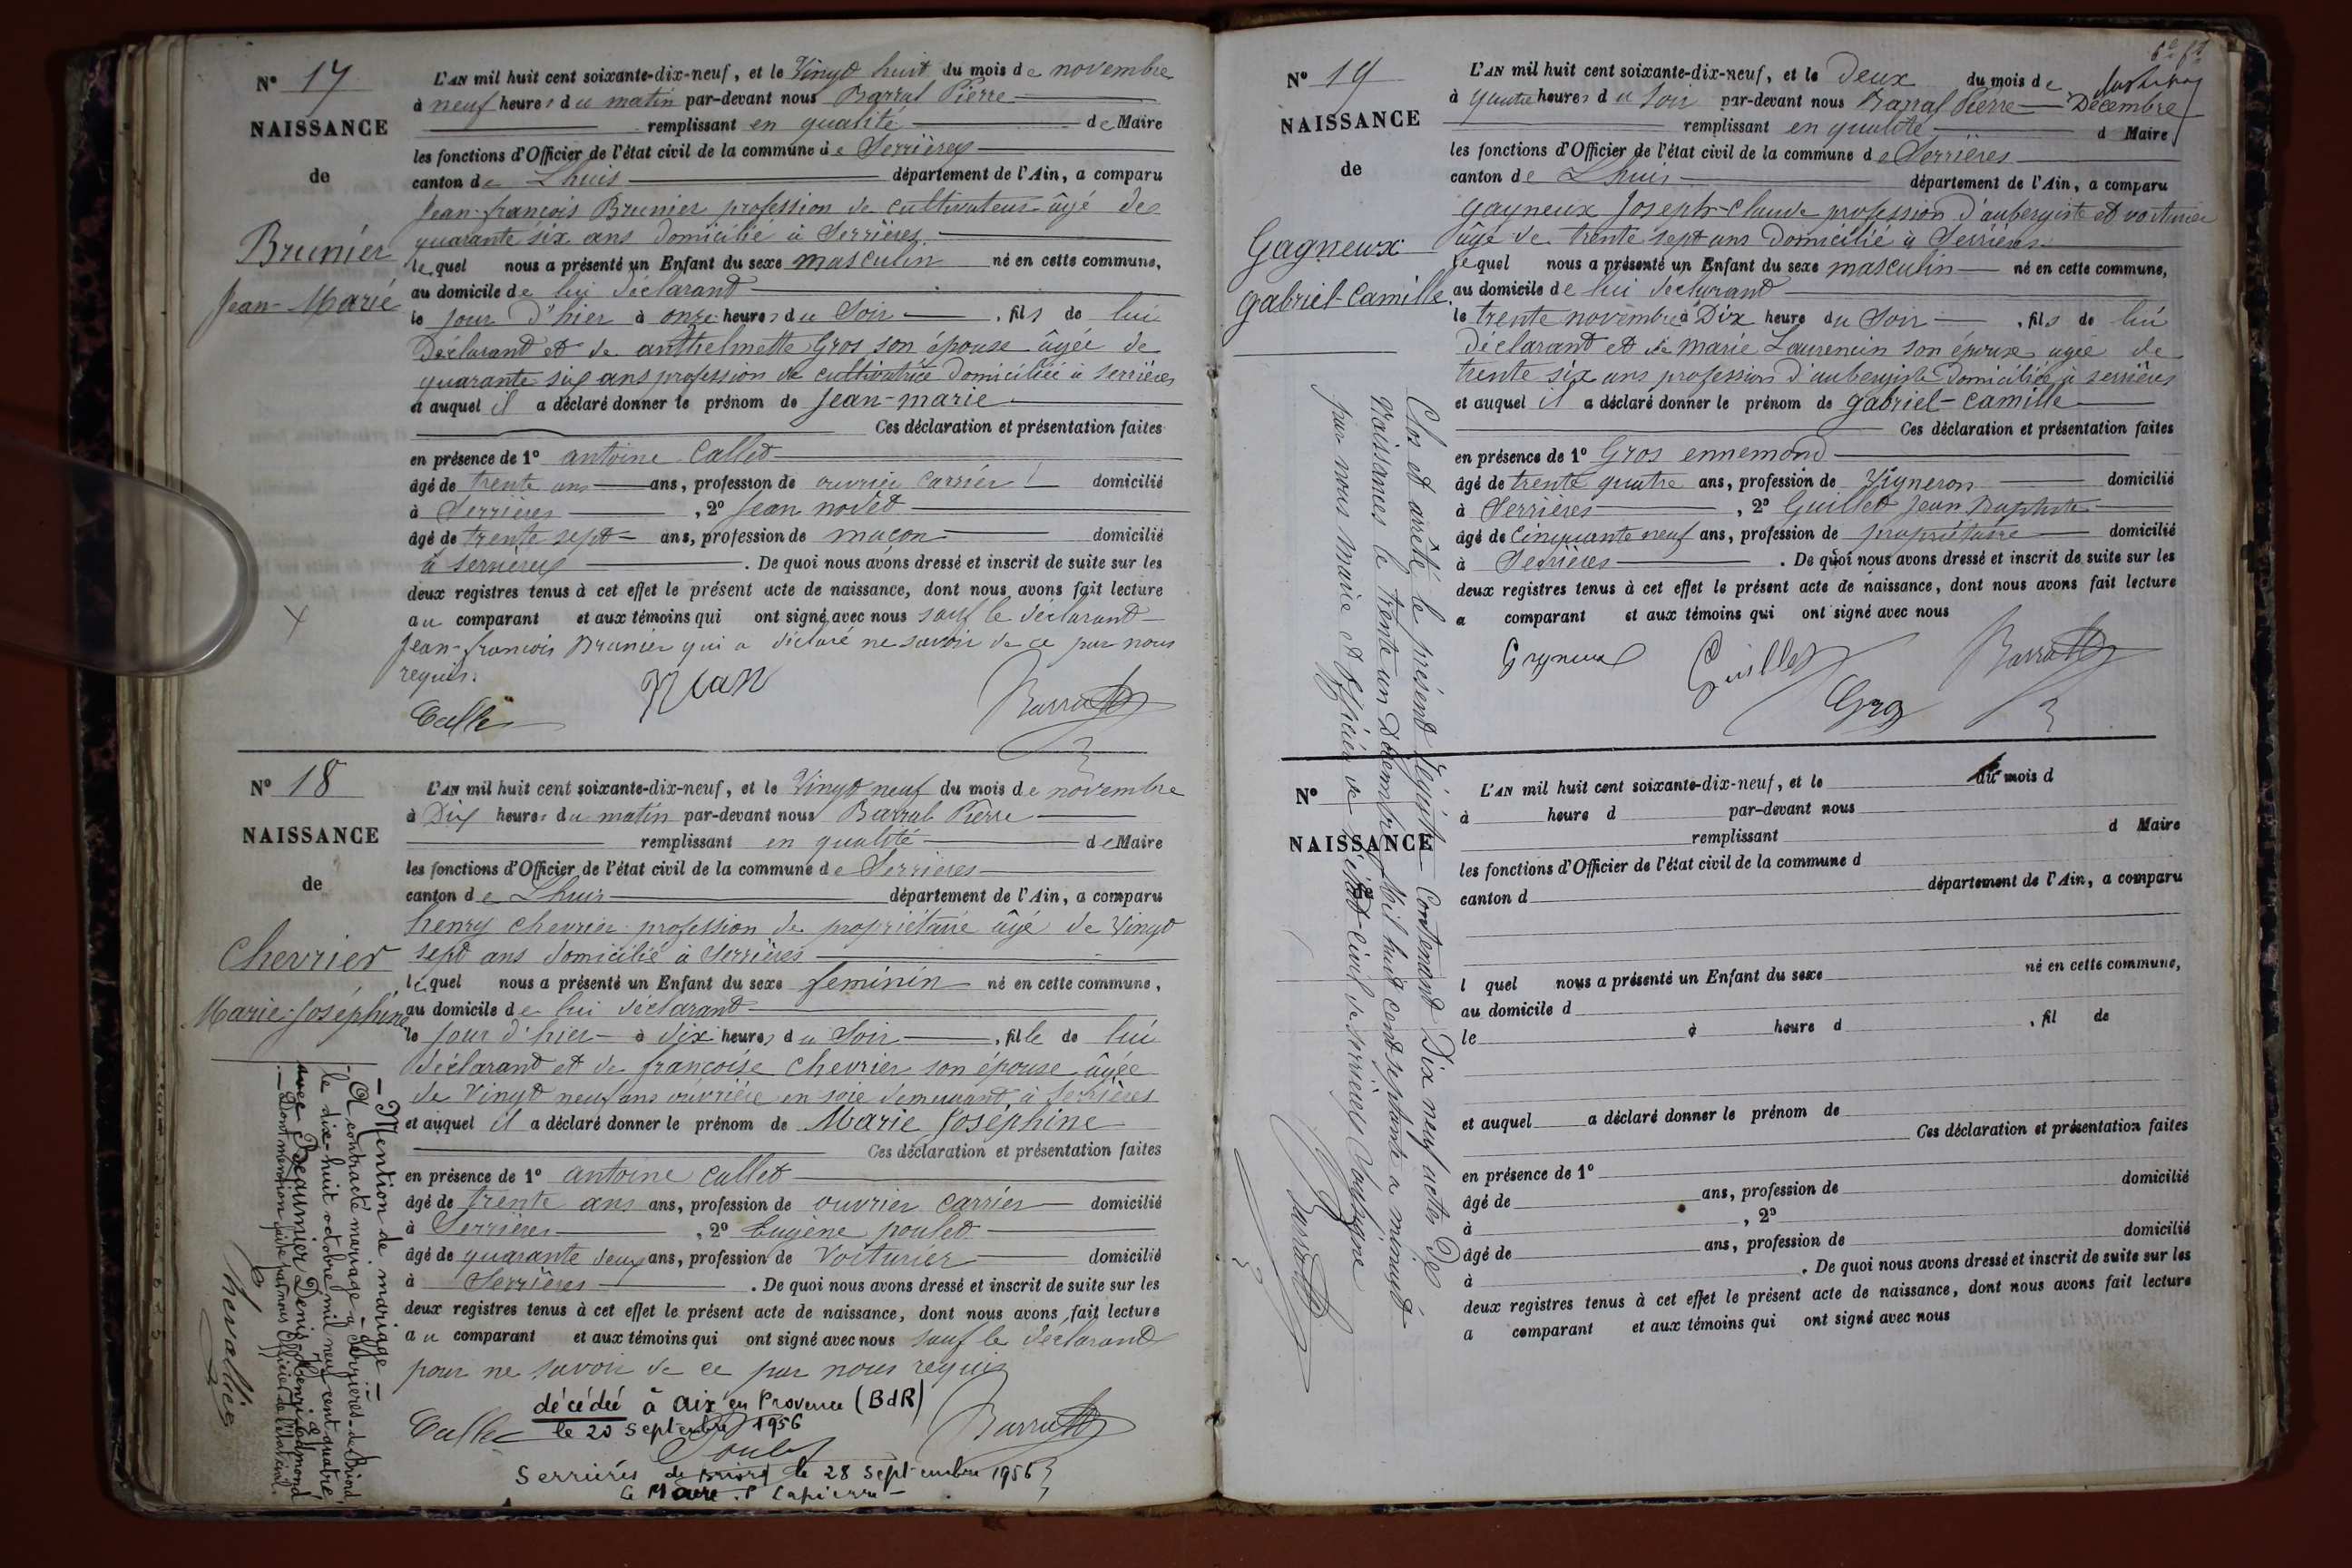 N° 17
NAISSANCE
de
Brunier
Jean-Marie
L'AN mil huit cent soixante-dix-neuf, et le Vingt huit du mois de novembre
à neuf heures du matin par-devant nous Barral Pierre
remplissant en qualité de Maire
les fonctions d'Officier de l'état civil de la commune de Serrières
canton de Lhuis département de l'Ain, a comparu
Jean-françois Brunier profession de cultivateur âgé de
quarante six ans domicilié à Serrières
lequel nous a présenté un Enfant du sexe masculin né en cette commune,
au domicile de lui déclarant
le jour d'hier à onze heures du Soir, fils de lui
Déclarant et de anthelmette Gros son épouse âgée de
quarante six ans profession de cultivatrice domiciliée à serrières
et auquel il a déclaré donner le prénom de Jean-marie
Ces déclaration et présentation faites
en présence de 1° antoine Callet
âgé de trente ans ans, profession de ouvrier carrier domicilié
à Serrières, 2° Jean nodet
âgé de trente sept ans, profession de maçon domicilié
à serrières. De quoi nous avons dressé et inscrit de suite sur les
deux registres tenus à cet effet le présent acte de naissance, dont nous avons fait lecture
au comparant et aux témoins qui ont signé avec nous sauf le déclarant
Jean-françois Brunier qui a déclaré ne savoir de ce par nous
requis.
Callet Barral
N° 18
NAISSANCE
de
Chevrier
Marie-Joséphine
L'AN mil huit cent soixante-dix-neuf, et le Vingt neuf du mois de novembre
à Dix heures du matin par-devant nous Barral Pierre
remplissant en qualité de Maire
les fonctions d'Officier de l'état civil de la commune de Serrières
canton de Lhuis département de l'Ain, a comparu
henry chevrier profession de propriétaire âgé de Vingt
sept ans domicilié à Serrières
lequel nous a présenté un Enfant du sexe feminin né en cette commune,
au domicile de lui déclarant
le jour d'hier à dix heures du Soir, fille de lui
déclarant et de françoise Chevrier son épouse âgée
de Vingt neuf ans ouvrière en soie demeurant à Serrières
et auquel il a déclaré donner le prénom de Marie Joséphine
Ces déclaration et présentation faites
en présence de 1° antoine callet
âgé de trente ans ans, profession de ouvrier carrier domicilié
à Serrières, 2° Eugène poulet
âgé de quarante deux ans, profession de Voiturier domicilié
à Serrières. De quoi nous avons dressé et inscrit de suite sur les
deux registres tenus à cet effet le présent acte de naissance, dont nous avons fait lecture
au comparant et aux témoins qui ont signé avec nous sauf le déclarant
pour ne savoir de ce par nous requis
décédée à Aix en Provence (BdR)
le 20 Septembre 1956
Callet Poulet Barral
Serrières de Briord le 28 Septembre 1956
Le Maire. Lapierre
— Mention de mariage —
A contracté mariage à Serrières-de-Briord,
le dix-huit octobre mil neuf cent quatre
avec Denis Henri Edmond
Dont mention faite par nous Officier de l'état civil.
Chevallier
N° 19
NAISSANCE
de
Gagneux
gabriel-Camille
L'AN mil huit cent soixante-dix-neuf, et le Deux du mois de Décembre
à quatre heures du Soir par-devant nous Barral Pierre
remplissant en qualité d Maire
les fonctions d'Officier de l'état civil de la commune de Serrières
canton de Lhuis département de l'Ain, a comparu
gagneux Joseph-claude profession d'aubergiste et voiturier
âgé de trente sept ans domicilié à Serrières
lequel nous a présenté un Enfant du sexe masculin né en cette commune,
au domicile de lui déclarant
le trente novembre à Dix heure du Soir, fils de lui
déclarant et de marie Laurencin son épouse agée de
trente six ans profession d'aubergiste domiciliée à serrières
et auquel il a déclaré donner le prénom de gabriel-camille
Ces déclaration et présentation faites
en présence de 1° Gros ennemond
âgé de trente quatre ans, profession de Vigneron domicilié
à Serrières, 2° Guillet Jean Baptiste
âgé de Cinquante neuf ans, profession de propriétaire domicilié
à Serrières. De quoi nous avons dressé et inscrit de suite sur les
deux registres tenus à cet effet le présent acte de naissance, dont nous avons fait lecture
a comparant et aux témoins qui ont signé avec nous
Gagneux Guillet Barral
Gros
Clos et arrêté le présent registre Contenant Dix neuf actes De
Naissances le trente un Décembre Mil huit cent septante neuf à minuit
par nous maire et Officier de l'état-civil de serrières
Barral
N°
NAISSANCE
de
L'AN mil huit cent soixante-dix-neuf, et le du mois d
à heure d par-devant nous
remplissant d Maire
les fonctions d'Officier de l'état civil de la commune d
canton d département de l'Ain, a comparu
l quel nous a présenté un Enfant du sexe né en cette commune,
au domicile d
le à heure d, fil de
et auquel a déclaré donner le prénom de
Ces déclaration et présentation faites
en présence de 1°
âgé de ans, profession de domicilié
à, 2°
âgé de ans, profession de domicilié
à. De quoi nous avons dressé et inscrit de suite sur les
deux registres tenus à cet effet le présent acte de naissance, dont nous avons fait lecture
a comparant et aux témoins qui ont signé avec nous